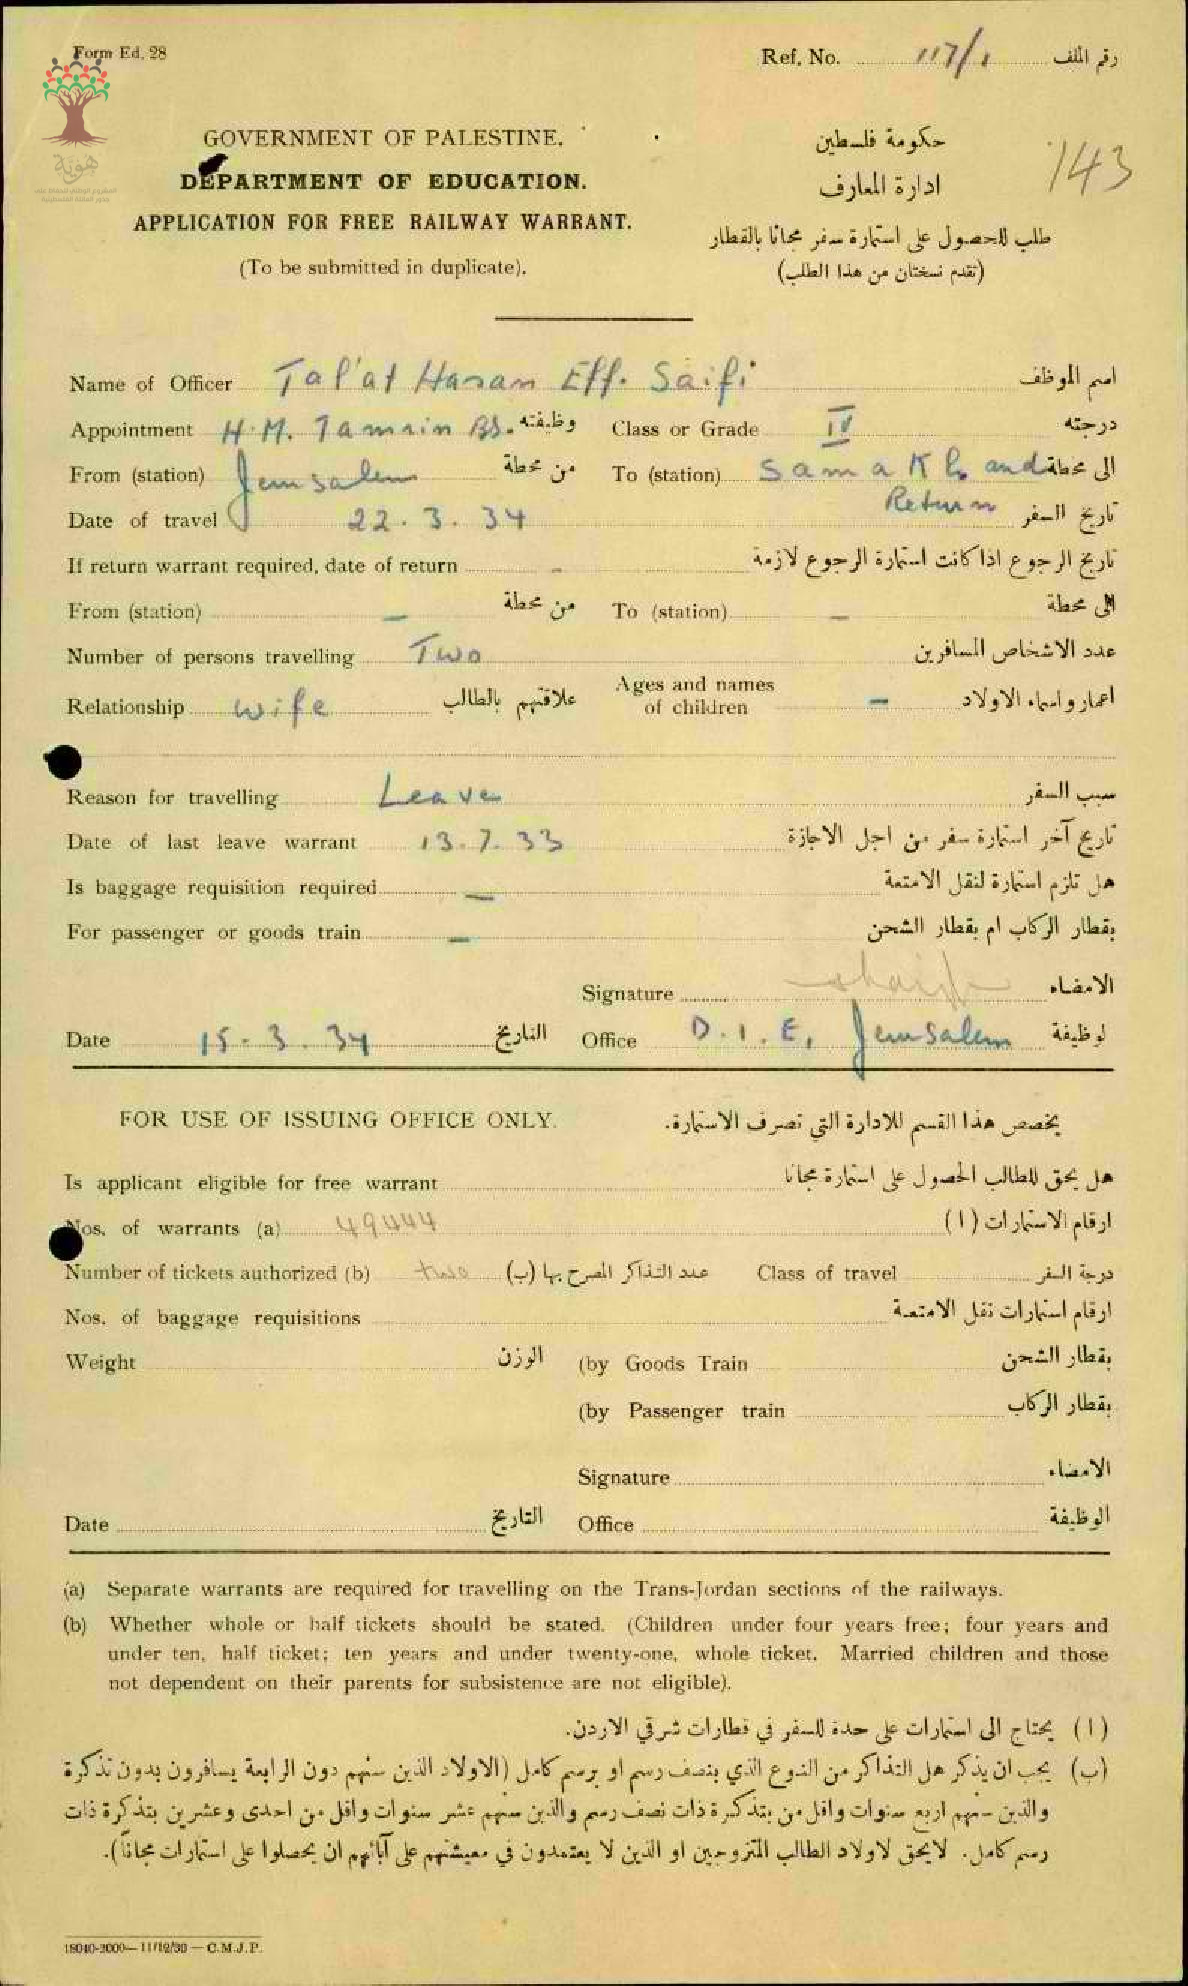 Form Ed. 28
Ref. No. 117/1 رقم الملف
GOVERNMENT OF PALESTINE. حكومة فلسطين
143
DEPARTMENT OF EDUCATION. ادارة المعارف
APPLICATION FOR FREE RAILWAY WARRANT. طلب للحصول على استمارة سفر مجانا بالقطار
(To be submitted in duplicate). (تقدم نسختان من هذا الطلب)
هوية
Name of Officer Tal'at Hasan Eff. Saifi اسم الموظف
Appointment H.M. Tamrin BS. وظيفته Class or Grade IV درجته
From (station) Jerusalem من محطة To (station) Samakh and الى محطة
Return
Date of travel 22.3.34 تاريخ السفر
If return warrant required, date of return - تاريخ الرجوع اذا كانت استمارة الرجوع لازمة
From (station) - من محطة To (station) - الى محطة
Number of persons travelling Two عدد الاشخاص المسافرين
Relationship wife علاقتهم بالطالب Ages and names of children - اعمار واسماء الاولاد
Reason for travelling Leave سبب السفر
Date of last leave warrant 13.7.33 تاريخ آخر استمارة سفر من اجل الاجازة
Is baggage requisition required - هل تلزم استمارة لنقل الامتعة
For passenger or goods train - بقطار الركاب ام بقطار الشحن
Signature الامضاء
Date 15.3.34 التاريخ Office D.I.E, Jerusalem لوظيفة
FOR USE OF ISSUING OFFICE ONLY. يخصص هذا القسم للادارة التي تصرف الاستمارة.
Is applicant eligible for free warrant هل يحق للطالب الحصول على استمارة مجانا
Nos. of warrants (a) 49444 ارقام الاستمارات (ا)
Number of tickets authorized (b) two عدد التذاكر المصرح بها (ب) Class of travel درجة السفر
Nos. of baggage requisitions ارقام استمارات نقل الامتعة
Weight الوزن (by Goods Train بقطار الشحن
(by Passenger train بقطار الركاب
Signature الامضاء
Date التاريخ Office الوظيفة
(a) Separate warrants are required for travelling on the Trans-Jordan sections of the railways.
(b) Whether whole or half tickets should be stated. (Children under four years free; four years and
under ten, half ticket; ten years and under twenty-one, whole ticket. Married children and those
not dependent on their parents for subsistence are not eligible).
(ا) يحتاج الى استمارات على حدة للسفر في قطارات شرقي الاردن.
(ب) يجب ان يذكر هل التذاكر من النوع الذي بنصف رسم او برسم كامل (الاولاد الذين سنهم دون الرابعة يسافرون بدون تذكرة
والذين سنهم اربع سنوات واقل من بتذكرة ذات نصف رسم والذين سنهم عشر سنوات واقل من احدى وعشرين بتذكرة ذات
رسم كامل. لا يحق لاولاد الطالب المتزوجين او الذين لا يعتمدون في معيشتهم على آبائهم ان يحصلوا على استمارات مجانا).
18040-2000—11/12/30 — C.M.J.P.